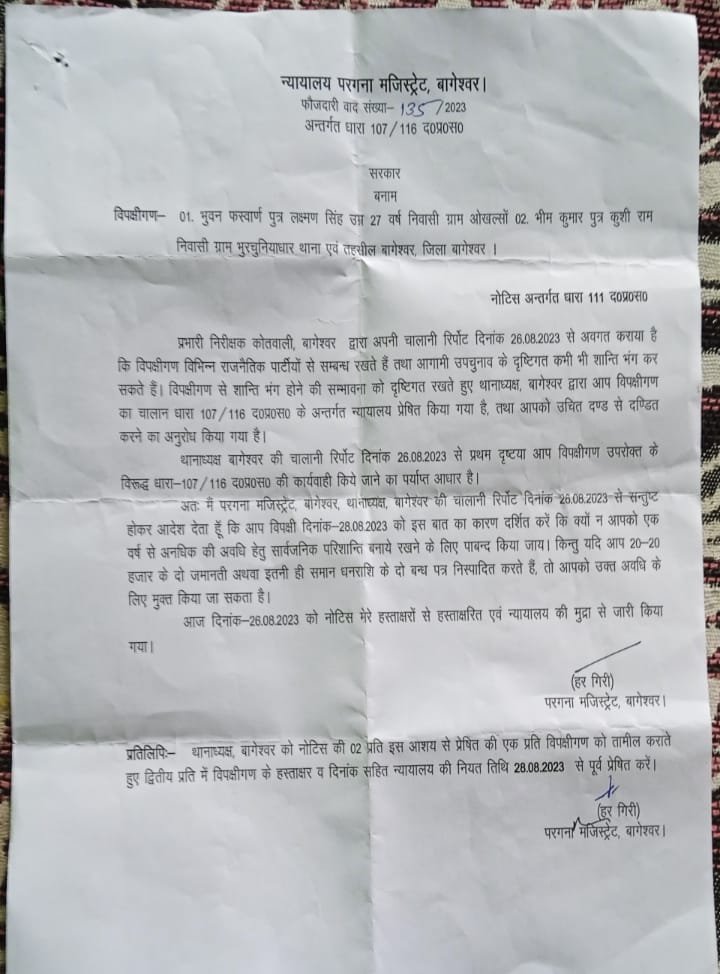 न्यायालय परगना मजिस्ट्रेट, बागेश्वर।
फौजदारी वाद संख्या- 135/2023
अन्तर्गत धारा 107/116 द०प्र०स०
सरकार
बनाम
विपक्षीगण- 01. भुवन फर्स्वाण पुत्र लक्ष्मण सिंह उम्र 27 वर्ष निवासी ग्राम ओखल्सों 02. भीम कुमार पुत्र कुशी राम
निवासी ग्राम भुरचुनियाधार थाना एवं तहसील बागेश्वर, जिला बागेश्वर ।
नोटिस अन्तर्गत धारा 111 द०प्र०स०
प्रभारी निरीक्षक कोतवाली, बागेश्वर द्वारा अपनी चालानी रिर्पोट दिनांक 26.08.2023 से अवगत कराया है
कि विपक्षीगण विभिन्न राजनैतिक पार्टीयों से सम्बन्ध रखते हैं तथा आगामी उपचुनाव के दृष्टिगत कभी भी शान्ति भंग कर
सकते हैं। विपक्षीगण से शान्ति भंग होने की सम्भावना को दृष्टिगत रखते हुए थानाध्यक्ष, बागेश्वर द्वारा आप विपक्षीगण
का चालान धारा 107/116 द०प्र०स० के अन्तर्गत न्यायालय प्रेषित किया गया है, तथा आपको उचित दण्ड से दण्डित
करने का अनुरोध किया गया है।
थानाध्यक्ष बागेश्वर की चालानी रिर्पोट दिनांक 26.08.2023 से प्रथम दृष्टया आप विपक्षीगण उपरोक्त के
विरूद्ध धारा-107/116 द०प्र०स० की कार्यवाही किये जाने का पर्याप्त आधार है।
अतः मैं परगना मजिस्ट्रेट, बागेश्वर, थानाध्यक्ष, बागेश्वर की चालानी रिर्पोट दिनांक 26.08.2023 से सन्तुष्ट
होकर आदेश देता हूँ कि आप विपक्षी दिनांक-28.08.2023 को इस बात का कारण दर्शित करें कि क्यों न आपको एक
वर्ष से अनधिक की अवधि हेतु सार्वजनिक परिशान्ति बनाये रखने के लिए पाबन्द किया जाय। किन्तु यदि आप 20-20
हजार के दो जमानती अथवा इतनी ही समान धनराशि के दो बन्ध पत्र निस्पादित करते हैं, तो आपको उक्त अवधि के
लिए मुक्त किया जा सकता है।
आज दिनांक-26.08.2023 को नोटिस मेरे हस्ताक्षरों से हस्ताक्षरित एवं न्यायालय की मुद्रा से जारी किया
गया।
(हर गिरी)
परगना मजिस्ट्रेट, बागेश्वर।
प्रतिलिपिः- थानाध्यक्ष, बागेश्वर को नोटिस की 02 प्रति इस आशय से प्रेषित की एक प्रति विपक्षीगण को तामील कराते
हुए द्वितीय प्रति में विपक्षीगण के हस्ताक्षर व दिनांक सहित न्यायालय की नियत तिथि 28.08.2023 से पूर्व प्रेषित करें।
(हर गिरी)
परगना मजिस्ट्रेट, बागेश्वर।